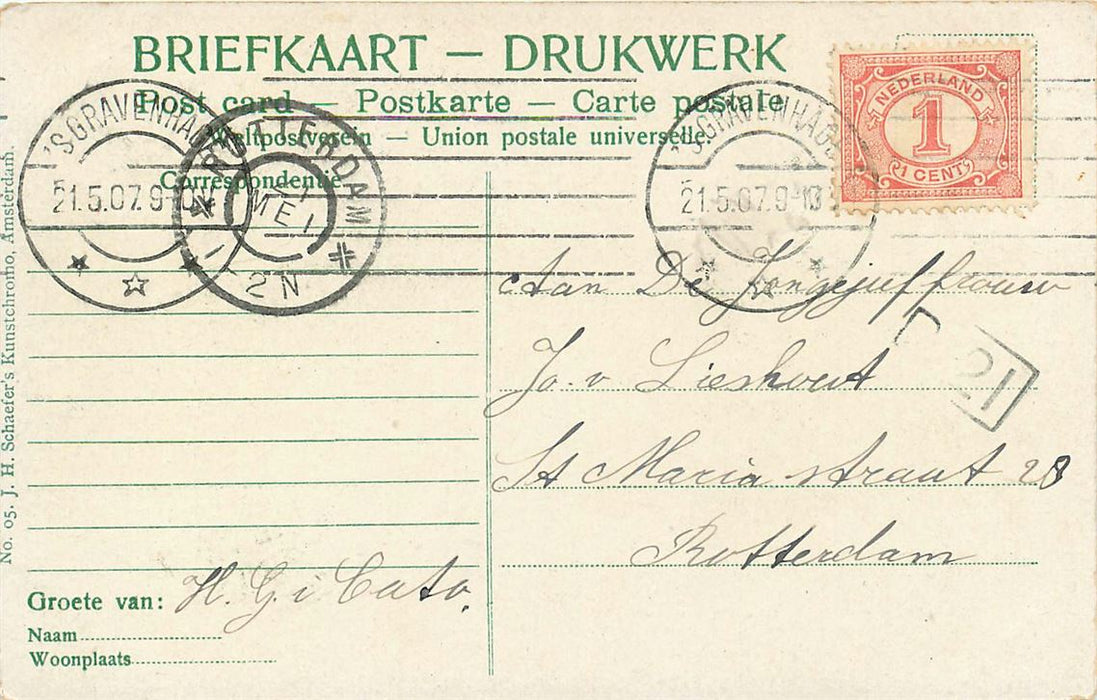 BRIEFKAART — DRUKWERK
Post card — Postkarte — Carte postale
Weltpostverein — Union postale universelle
Correspondentie
'S GRAVENHAGE
21.5.07.9-10
ROTTERDAM
MEI
2N
'S GRAVENHAGE
21.5.07.9-10
NEDERLAND
1
1 CENT
Aan De Jongejuffrouw
Jo. v Lieshout
St Maria straat 28
Rotterdam
21
Groete van: H. G. i Cato.
Naam
Woonplaats
No. 05. J. H. Schaefer's Kunstchromo, Amsterdam.